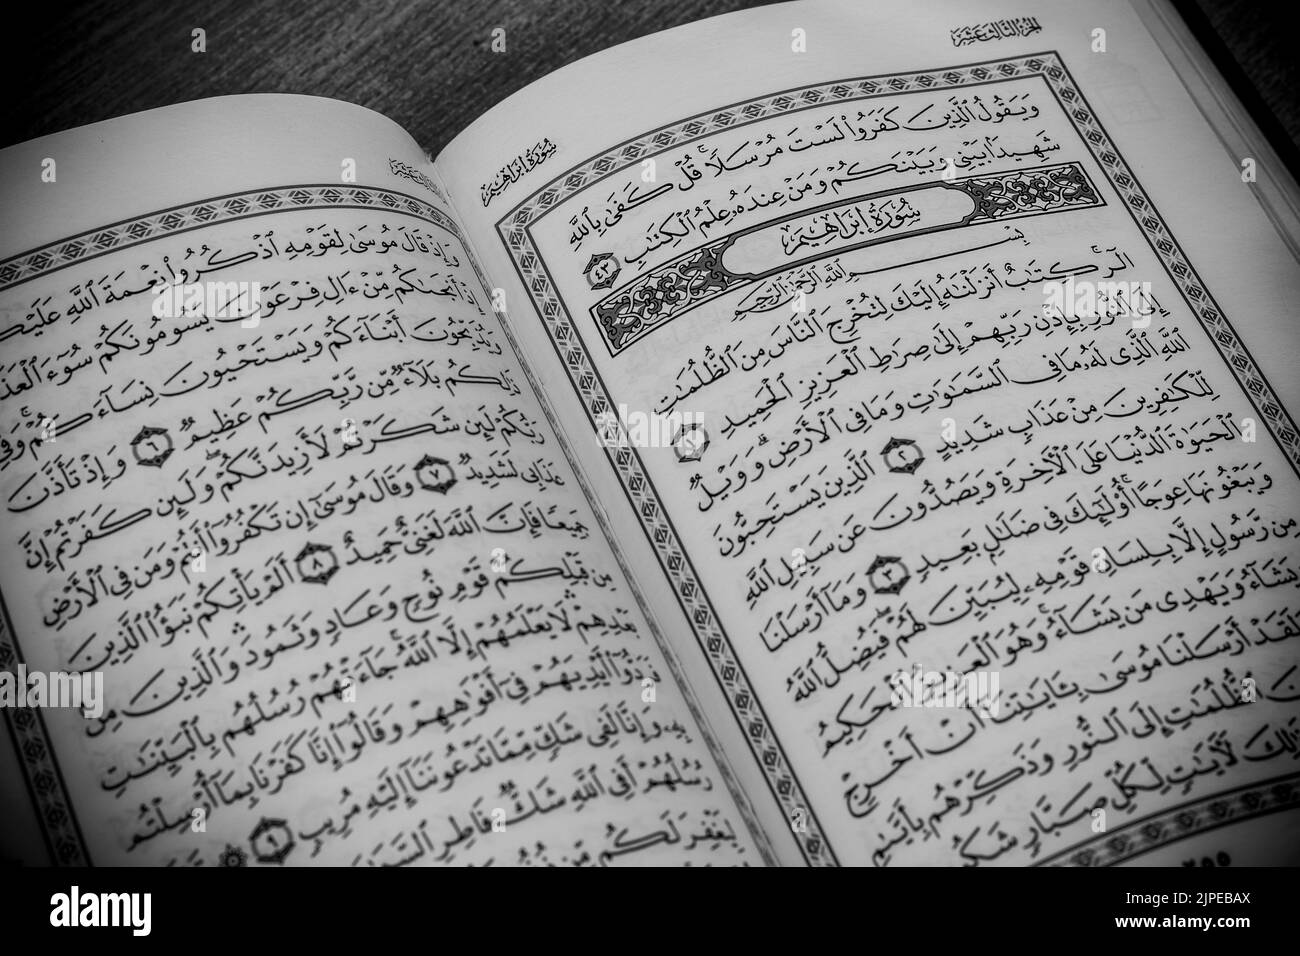 الجزء الثالث عشر
سورة إبراهيم
وَيَقُولُ ٱلَّذِينَ كَفَرُوا۟ لَسْتَ مُرْسَلًا ۚ قُلْ كَفَىٰ بِٱللَّهِ
شَهِيدًۢا بَيْنِى وَبَيْنَكُمْ وَمَنْ عِندَهُۥ عِلْمُ ٱلْكِتَٰبِ ٤٣
سُورَةُ إِبْرَاهِيم
بِسْمِ ٱللَّهِ ٱلرَّحْمَٰنِ ٱلرَّحِيمِ
الٓر ۚ كِتَٰبٌ أَنزَلْنَٰهُ إِلَيْكَ لِتُخْرِجَ ٱلنَّاسَ مِنَ ٱلظُّلُمَٰتِ
إِلَى ٱلنُّورِ بِإِذْنِ رَبِّهِمْ إِلَىٰ صِرَٰطِ ٱلْعَزِيزِ ٱلْحَمِيدِ ١
ٱللَّهِ ٱلَّذِى لَهُۥ مَا فِى ٱلسَّمَٰوَٰتِ وَمَا فِى ٱلْأَرْضِ ۗ وَوَيْلٌ
لِّلْكَٰفِرِينَ مِنْ عَذَابٍ شَدِيدٍ ٢ ٱلَّذِينَ يَسْتَحِبُّونَ
ٱلْحَيَوٰةَ ٱلدُّنْيَا عَلَى ٱلْءَاخِرَةِ وَيَصُدُّونَ عَن سَبِيلِ ٱللَّهِ
وَيَبْغُونَهَا عِوَجًا ۚ أُو۟لَٰٓئِكَ فِى ضَلَٰلٍۭ بَعِيدٍ ٣ وَمَآ أَرْسَلْنَا
مِن رَّسُولٍ إِلَّا بِلِسَانِ قَوْمِهِۦ لِيُبَيِّنَ لَهُمْ ۖ فَيُضِلُّ ٱللَّهُ
يَشَآءُ وَيَهْدِى مَن يَشَآءُ ۚ وَهُوَ ٱلْعَزِيزُ ٱلْحَكِيمُ
لَقَدْ أَرْسَلْنَا مُوسَىٰ بِـَٔايَٰتِنَآ أَنْ أَخْرِجْ
ٱلظُّلُمَٰتِ إِلَى ٱلنُّورِ وَذَكِّرْهُم بِأَيَّىٰمِ
ذَٰلِكَ لَءَايَٰتٍ لِّكُلِّ صَبَّارٍ شَكُورٍ
٢٥٥
وَإِذْ قَالَ مُوسَىٰ لِقَوْمِهِ ٱذْكُرُوا۟ نِعْمَةَ ٱللَّهِ عَلَيْكُمْ
إِذْ أَنجَىٰكُم مِّنْ ءَالِ فِرْعَوْنَ يَسُومُونَكُمْ سُوٓءَ ٱلْعَذَابِ
وَيُذَبِّحُونَ أَبْنَآءَكُمْ وَيَسْتَحْيُونَ نِسَآءَكُمْ ۚ وَفِى
ذَٰلِكُم بَلَآءٌ مِّن رَّبِّكُمْ عَظِيمٌ ٦ وَإِذْ تَأَذَّنَ
رَبُّكُمْ لَئِن شَكَرْتُمْ لَأَزِيدَنَّكُمْ ۖ وَلَئِن كَفَرْتُمْ إِنَّ
عَذَابِى لَشَدِيدٌ ٧ وَقَالَ مُوسَىٰٓ إِن تَكْفُرُوٓا۟ أَنتُمْ وَمَن فِى ٱلْأَرْضِ
جَمِيعًا فَإِنَّ ٱللَّهَ لَغَنِىٌّ حَمِيدٌ ٨ أَلَمْ يَأْتِكُمْ نَبَؤُا۟ ٱلَّذِينَ
مِن قَبْلِكُمْ قَوْمِ نُوحٍ وَعَادٍ وَثَمُودَ ۛ وَٱلَّذِينَ مِنۢ
بَعْدِهِمْ ۛ لَا يَعْلَمُهُمْ إِلَّا ٱللَّهُ ۚ جَآءَتْهُمْ رُسُلُهُم بِٱلْبَيِّنَٰتِ
فَرَدُّوٓا۟ أَيْدِيَهُمْ فِىٓ أَفْوَٰهِهِمْ وَقَالُوٓا۟ إِنَّا كَفَرْنَا بِمَآ أُرْسِلْتُم
بِهِۦ وَإِنَّا لَفِى شَكٍّ مِّمَّا تَدْعُونَنَآ إِلَيْهِ مُرِيبٍ ٩
رُسُلُهُمْ أَفِى ٱللَّهِ شَكٌّ فَاطِرِ ٱلسَّمَٰوَٰتِ
لِيَغْفِرَ لَكُم مِّن ذُنُوبِكُمْ
alamy
Image ID: 2JPEBAX
www.alamy.com